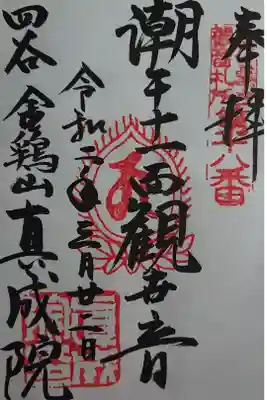 奉拝
潮干十一面観世音
令和二年三月廿二日
四谷 金鶏山 真成院